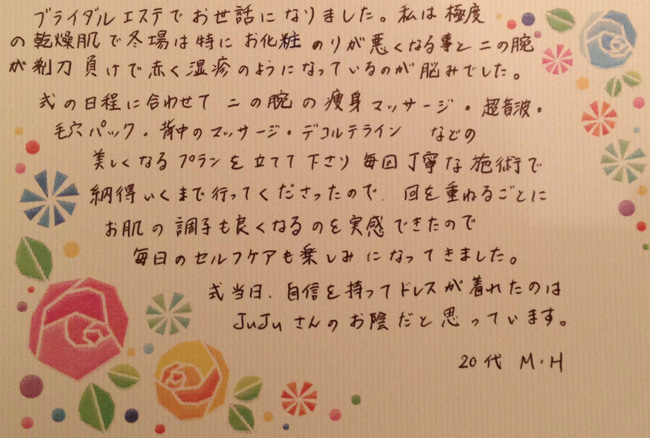 ブライダルエステでお世話になりました。私は極度
の乾燥肌で冬場は特にお化粧のりが悪くなる事と二の腕
が剃刀負けで赤く湿疹のようになっているのが脳みでした。
式の日程に合わせて二の腕の痩身マッサージ・超音波・
毛穴パック・背中のマッサージ・デコルテライン などの
美しくなるプランを立てて下さり毎回丁寧な施術で
納得いくまで行ってくださったので、回を重ねるごとに
お肌の調子も良くなるのを実感できたので
毎日のセルフケアも楽しみになってきました。
式当日、自信を持ってドレスが着れたのは
JuJuさんのお陰だと思っています。
20代 M・H